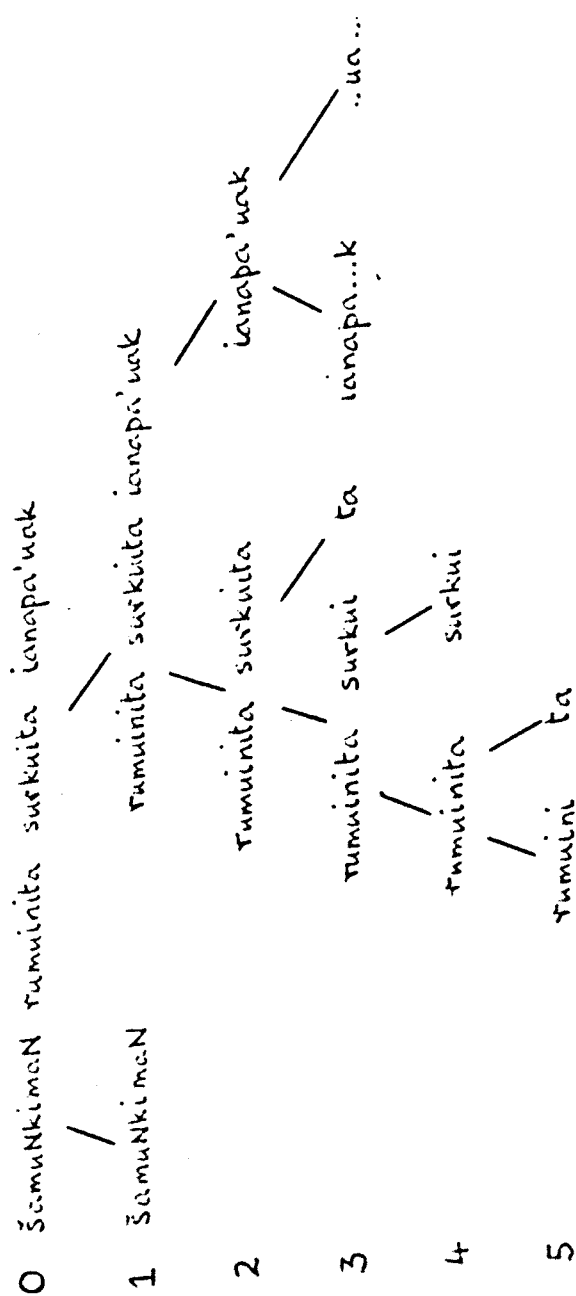 0 ŠamuNkimaN rumuinita surkuita ianapa'uak
1 ŠamuNkimaN rumuinita surkuita ianapa'uak
2 rumuinita surkuita ianapa'uak
3 rumuinita surkui ta ianapa...k ..ua...
4 rumuinita surkui
5 rumuini ta